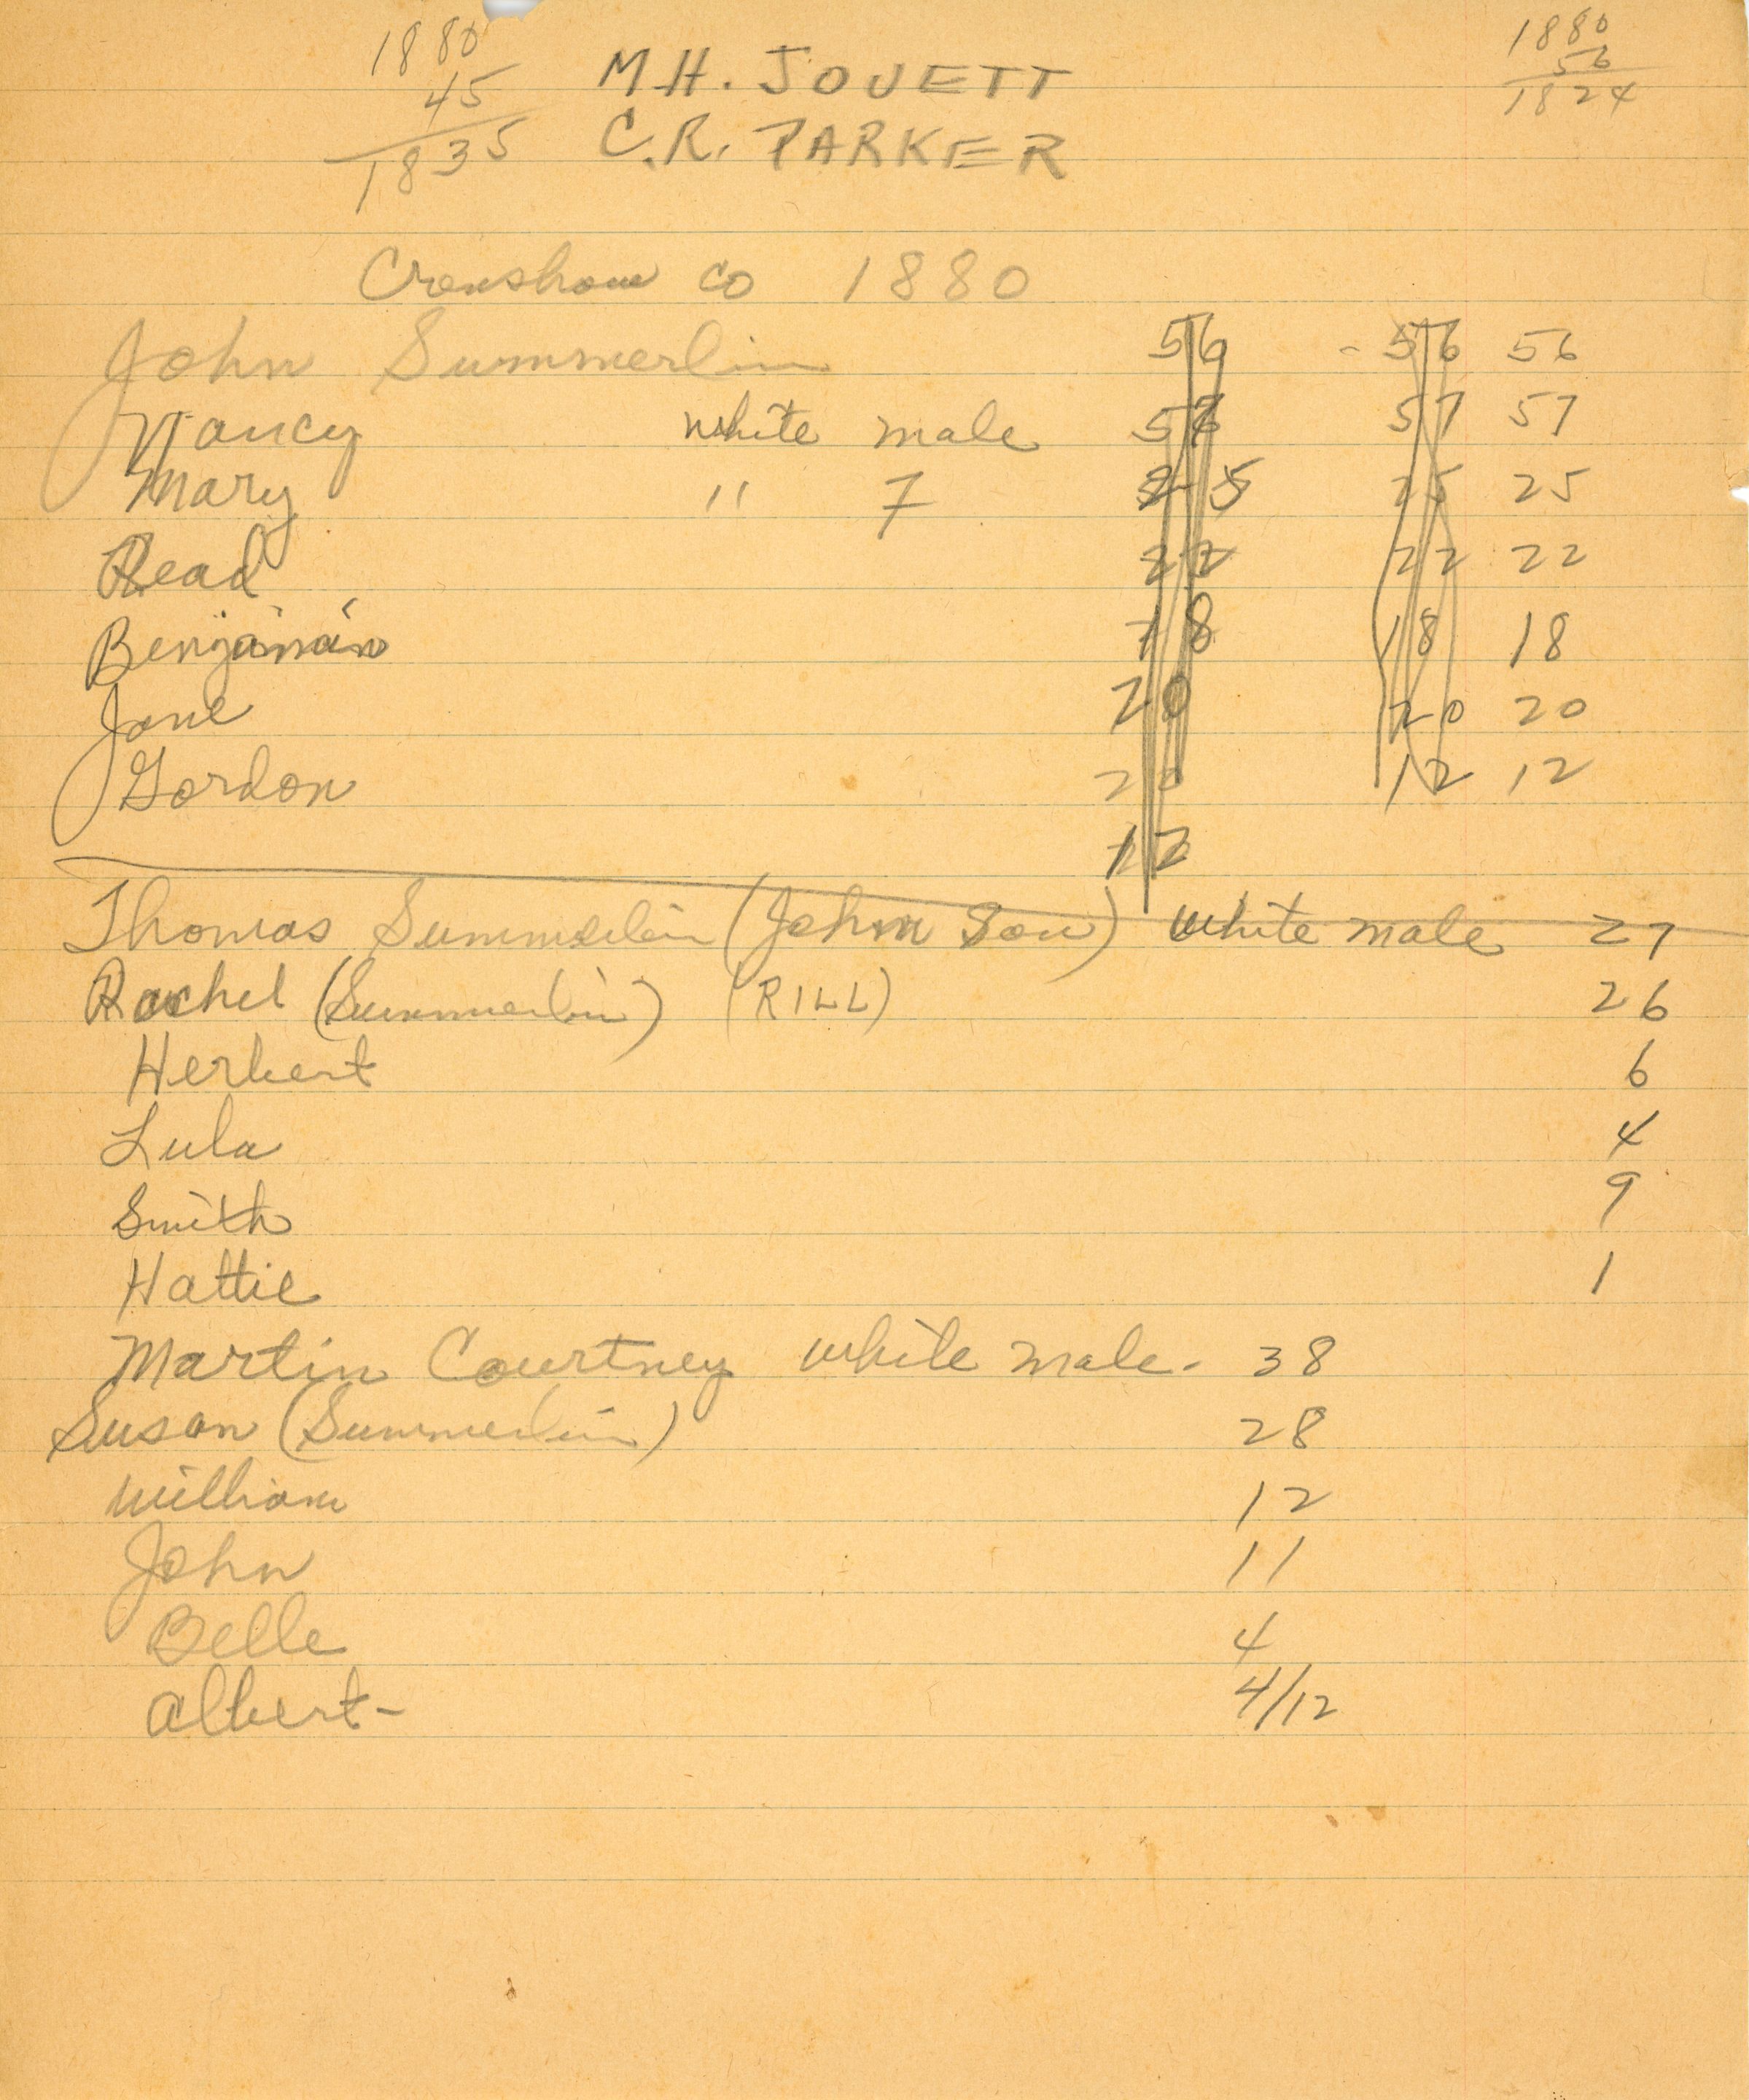 1880
45
1835
M.H. JOUETT
C.R. PARKER
1880
56
1824
Crenshaw co 1880
John Summerlin 56 - 56 56
Nancy white male 57 57
Mary " 7 25 25 25
Read 22 22 22
Benjaman 18 18 18
Jane 20 20 20
Gordon 20 12 12
12
Thomas Summerlin (John Son) white male 27
Rachel (Summerlin) (RILL) 26
Herbert 6
Lula 4
Smith 9
Hattie 1
Martin Courtney white male - 38
Susan (Summerlin) 28
William 12
John 11
Belle 4
Albert - 4/12